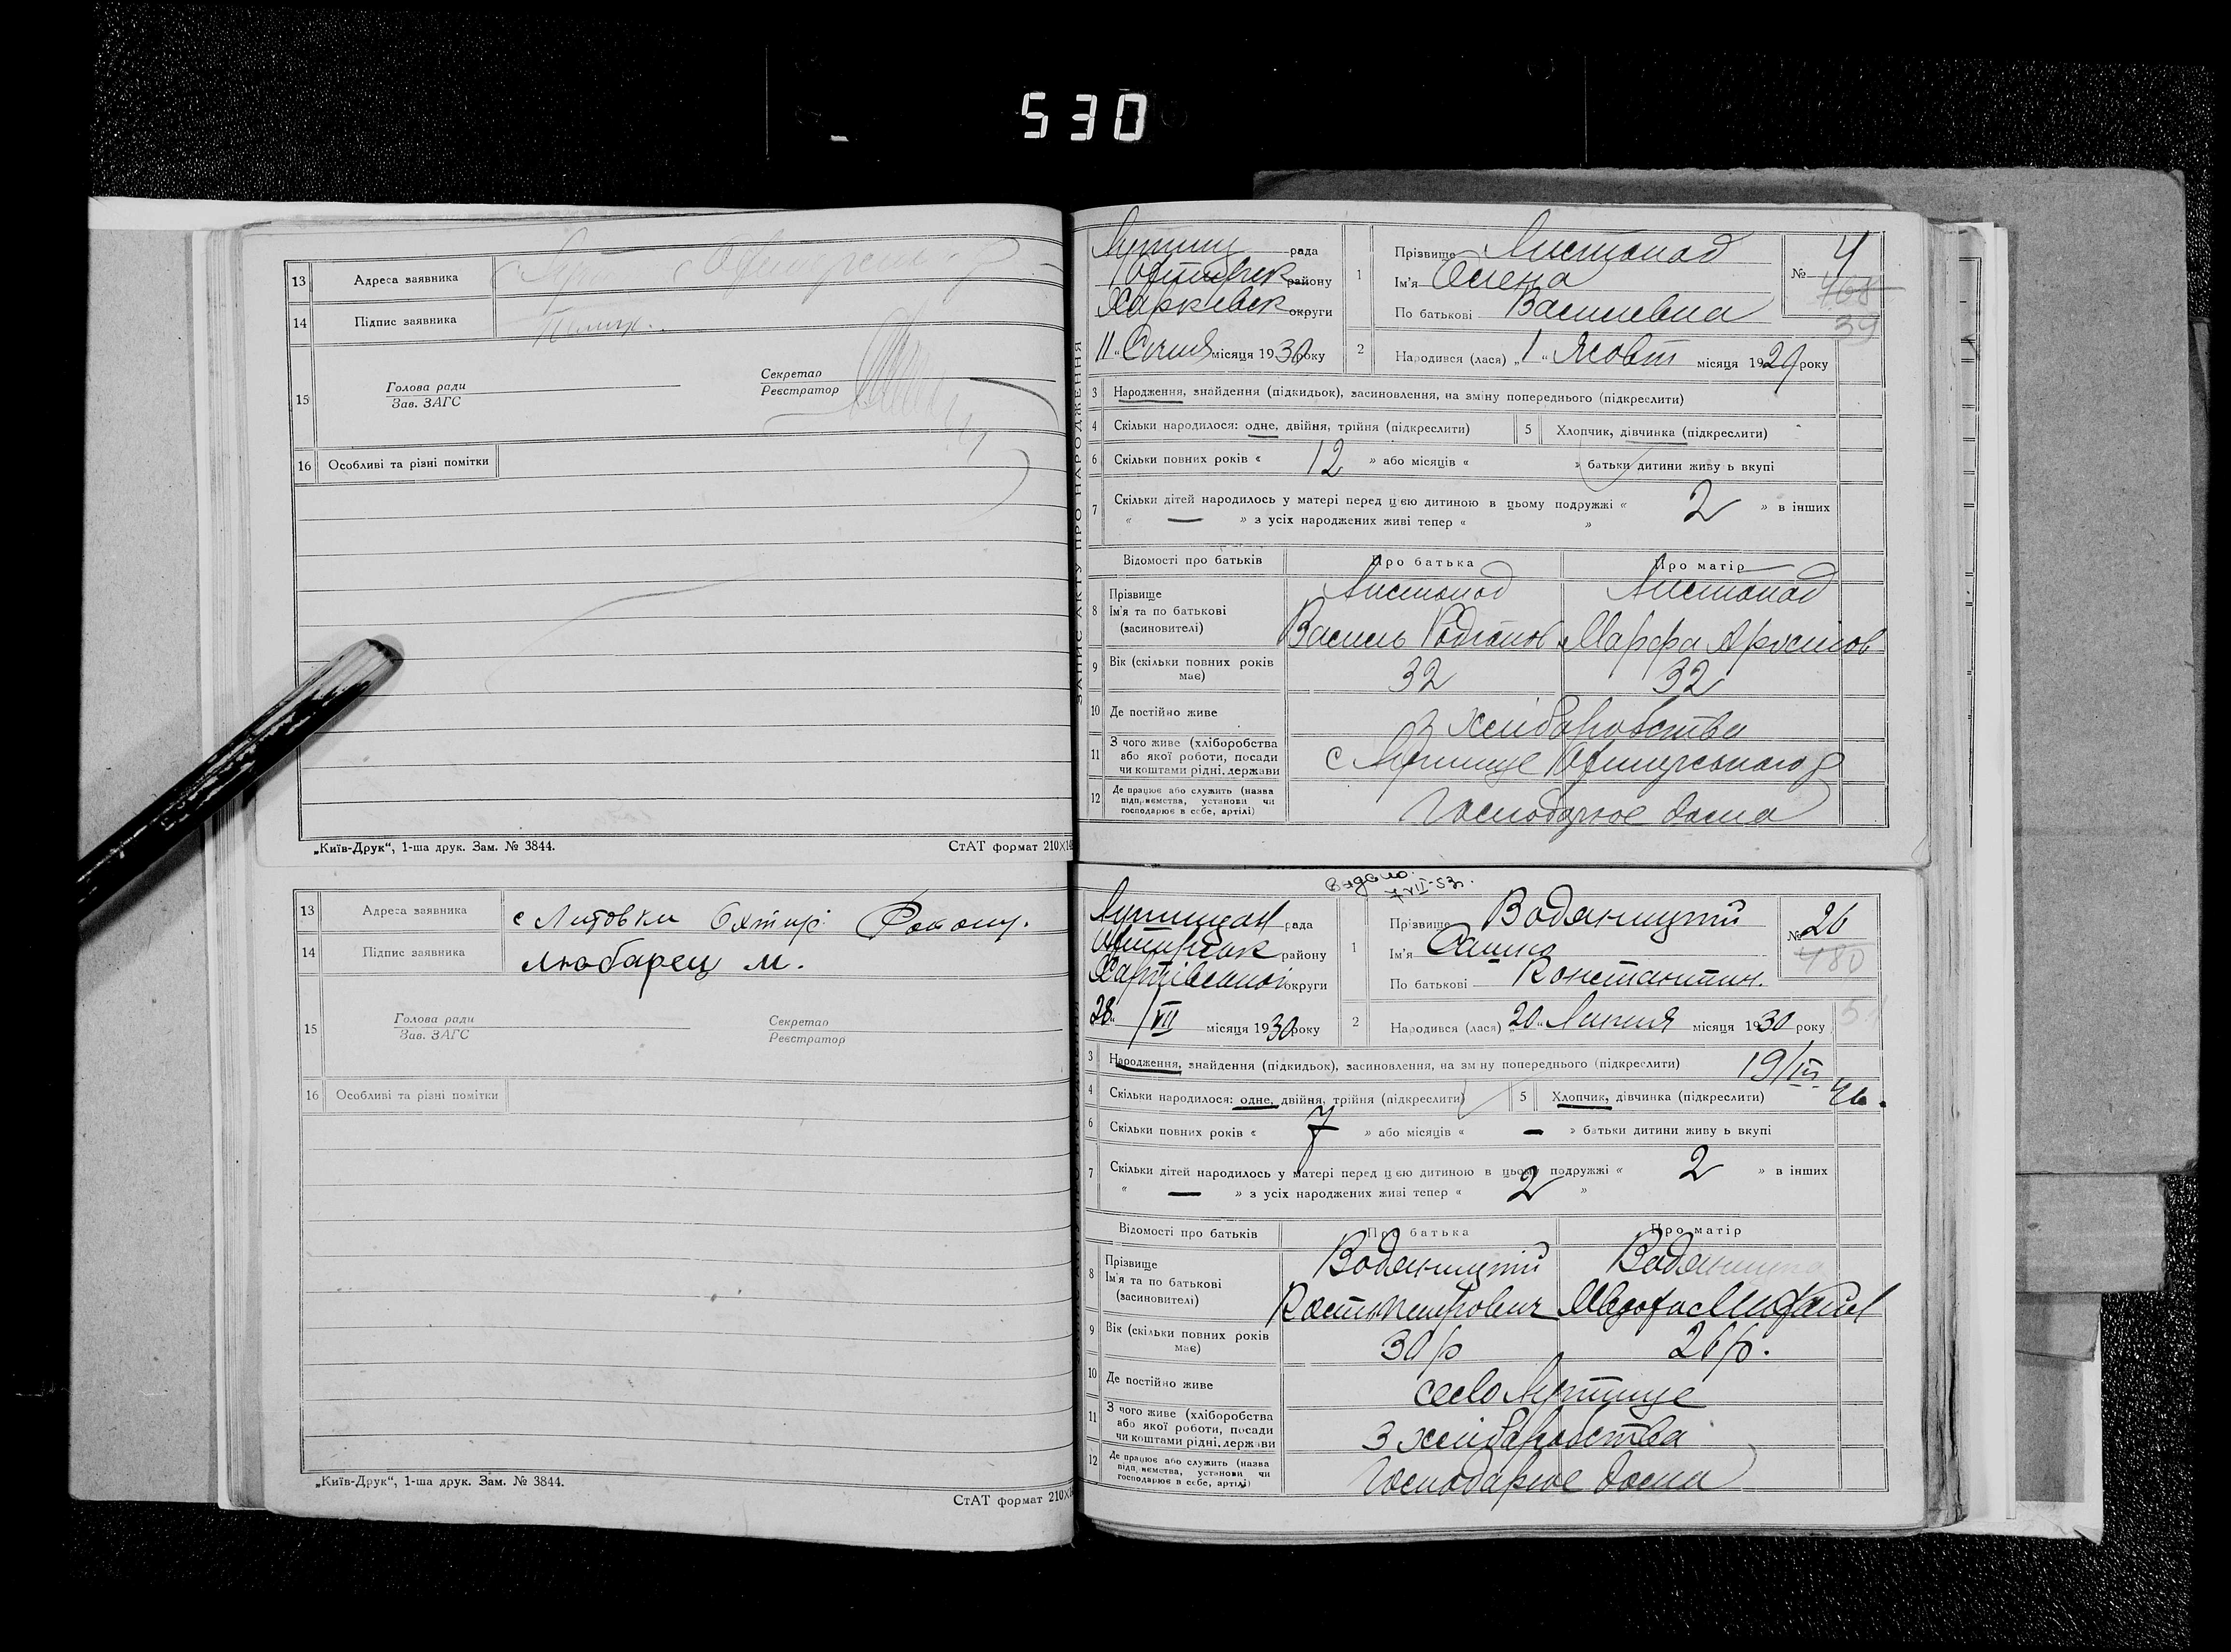 530
13 Адреса заявника с
14 Підпис заявника
15 Голова ради
Зав. ЗАГС
Секретар
Реєстратор
16 Особливі та різні помітки
„Київ-Друк“, 1-ша друк. Зам. № 3844. СтАТ формат 210×14
13 Адреса заявника с Литовки Охтир.
14 Підпис заявника Любарец М.
15 Голова ради
Зав. ЗАГС
Секретар
Реєстратор
16 Особливі та різні помітки
„Київ-Друк“, 1-ша друк. Зам. № 3844.
СтАТ формат 210×
ЗАПИС АКТУ ПРО НАРОДЖЕННЯ
рада
району
округи
„11“ Січня місяця 1930 року
№ 4
468
39
1 Прізвище Листопад
Ім'я Олена
По батькові Василевна
2 Народився (лася) „1“ Жовт місяця 1929 року
3 Народження, знайдення (підкидьок), засиновлення, на зміну попереднього (підкреслити)
4 Скільки народилося: одне, двійня, трійня (підкреслити) 5 Хлопчик, дівчинка (підкреслити)
6 Скільки повних років « 12 » або місяців « » батьки дитини живу ь вкупі
7 Скільки дітей народилось у матері перед цією дитиною в цьому подружжі « 2 » в інших
« — » з усіх народжених живі тепер « »
Відомості про батьків Про батька Про матір
8 Прізвище Листопад Листопад
Ім'я та по батькові
(засиновителі) Василь Марфа
9 Вік (скільки повних років має) 32 32
10 Де постійно живе З хліборобства
11 З чого живе (хліборобства
або якої роботи, посади
чи коштами рідні, держави с Лутище
12 Де працює або служить (назва
підприємства, установи чи
господарює в себе, артілі) Господарює дома
Видано
7 VII-53.
рада
району
округи
28 / VII місяця 1930 року
№ 26
480
1 Прізвище Водяницкий
Ім'я Сашко
По батькові Константин.
2 Народився (лася) „20“ Липня місяця 1930 року
3 Народження, знайдення (підкидьок), засиновлення, на зміну попереднього (підкреслити) 19/III
46.
4 Скільки народилося: одне, двійня, трійня (підкреслити) 5 Хлопчик, дівчинка (підкреслити)
6 Скільки повних років « 7 » або місяців « — » батьки дитини живу ь вкупі
7 Скільки дітей народилось у матері перед цією дитиною в цьому подружжі « 2 » в інших
« — » з усіх народжених живі тепер « 2 »
Відомості про батьків Про батька Про матір
8 Прізвище Водяницкий
Ім'я та по батькові
(засиновителі) Кость Петрович
9 Вік (скільки повних років має) 30 р 26 р.
10 Де постійно живе село Лутище
11 З чого живе (хліборобства
або якої роботи, посади
чи коштами рідні, держави З хліборобства
12 Де працює або служить (назва
підприємства, установи чи
господарює в себе, артілі) Господарює дома